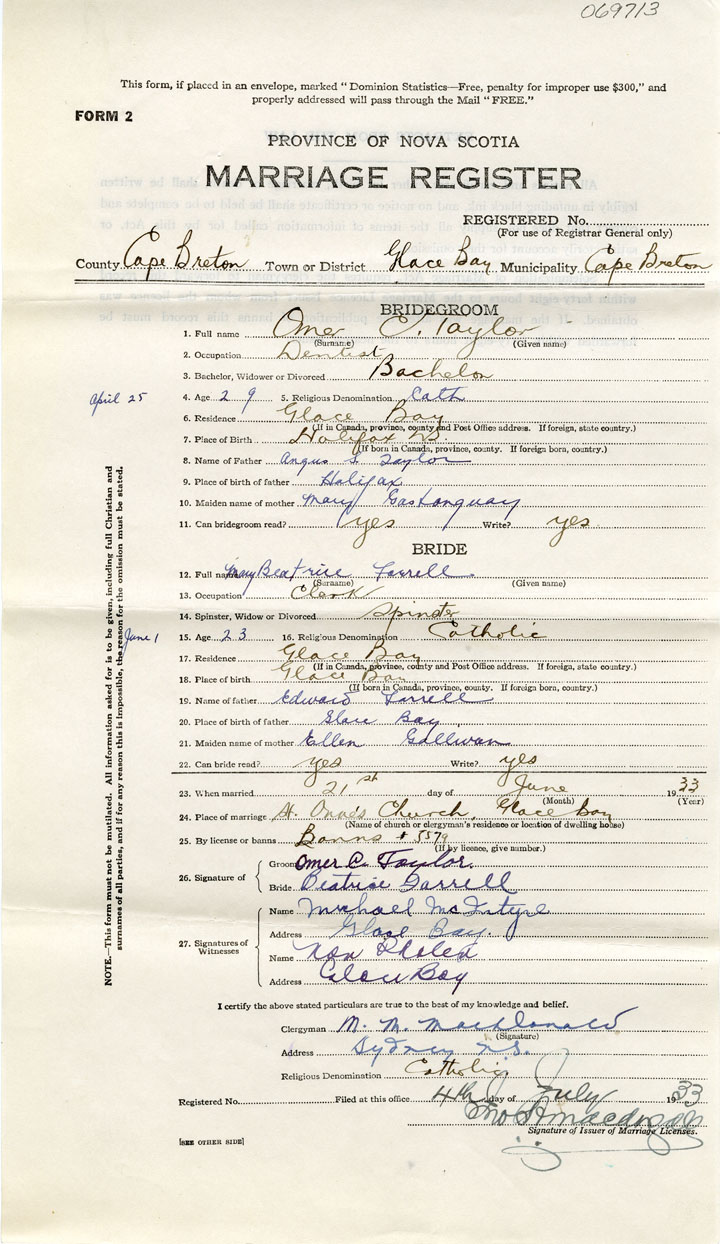 069713
This form, if placed in an envelope, marked "Dominion Statistics—Free, penalty for improper use $300," and
properly addressed will pass through the Mail "FREE."
FORM 2
PROVINCE OF NOVA SCOTIA
MARRIAGE REGISTER
REGISTERED No.
(For use of Registrar General only)
County Cape Breton Town or District Glace Bay Municipality Cape Breton
BRIDEGROOM
1. Full name Omer C. Taylor
(Surname) (Given name)
2. Occupation Dentist
3. Bachelor, Widower or Divorced Bachelor
April 25
4. Age 29 5. Religious Denomination Cath
6. Residence Glace Bay
(If in Canada, province, county and Post Office address. If foreign, state country.)
7. Place of Birth Halifax
(If born in Canada, province, county. If foreign born, country.)
8. Name of Father Angus S Taylor
9. Place of birth of father Halifax
10. Maiden name of mother Mary Gastonguay
11. Can bridegroom read? yes Write? yes
BRIDE
12. Full name Mary Beatrice Farrell
(Surname) (Given name)
13. Occupation Clerk
14. Spinster, Widow or Divorced Spinster
June 1
15. Age 23 16. Religious Denomination Catholic
17. Residence Glace Bay
(If in Canada, province, county and Post Office address. If foreign, state country.)
18. Place of birth Glace Bay
(If born in Canada, province, county. If foreign born, country.)
19. Name of father Edward Farrell
20. Place of birth of father Glace Bay
21. Maiden name of mother Ellen Gallivan
22. Can bride read? yes Write? yes
23. When married 21st day of June 1933
(Month) (Year)
24. Place of marriage St. Anne's Church, Glace Bay
(Name of church or clergyman's residence or location of dwelling house)
25. By license or banns Banns # 5579
(If by licence, give number.)
26. Signature of
Groom Omer C. Taylor.
Bride Beatrice Farrell
27. Signatures of Witnesses
Name Michael McIntyre
Address Glace Bay.
Name Phelan
Address Glace Bay
NOTE.—This form must not be mutilated. All information asked for is to be given, including full Christian and
surnames of all parties, and if for any reason this is impossible, the reason for the omission must be stated.
I certify the above stated particulars are true to the best of my knowledge and belief.
Clergyman M. M. MacDonald
(Signature)
Address Sydney N.S.
Religious Denomination Catholic
Registered No. Filed at this office 4th day of July 1933
Signature of Issuer of Marriage Licenses.
[SEE OTHER SIDE]